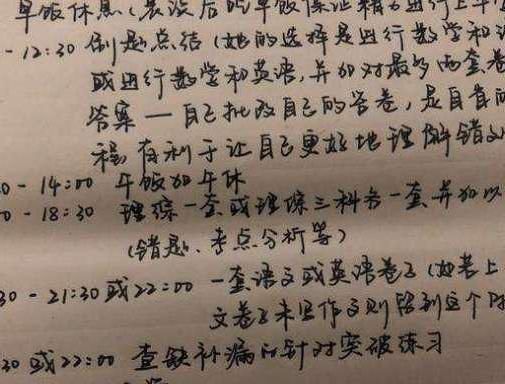 早饭休息（晨读后吃早饭保证精力进行上午
- 12:30 刷题总结（她的选择是进行数学和
或进行数学和英语，并加对最多两套卷
答案 — 自己批改自己的答卷，是自省的
程，有利于让自己更好地理解错
0 - 14:00 午饭加午休
0 - 18:30 理综一套或理综三科各一套并加以
（错题、考点分析等）
30 - 21:30 或 22:00 一套语文或英语卷子（如若上
文卷子未写作文则留到这个时
30 或 22:00 查缺补漏的针对突破练习